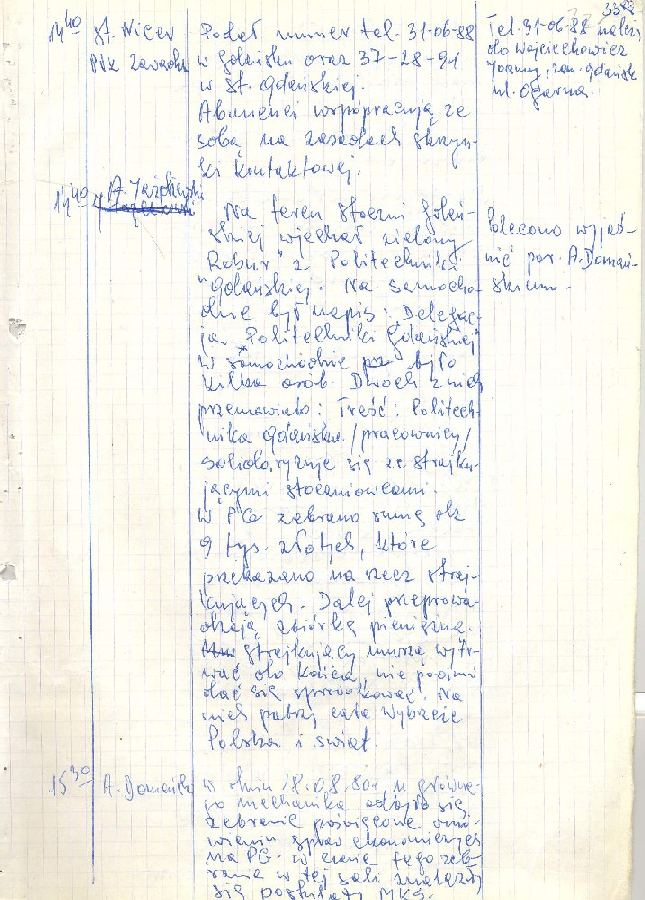 33
14⁴⁰ st. Nicer
Płk Zawada
Podał numer tel. 31-06-88
w Gdańsku oraz 37-28-91
w st. Gdańskiej.
Abonenci współpracują ze
sobą na zasadach skrzyn-
ki kontaktowej.
Tel. 31-06-88 należy
do Wojciechowicz
Joanny, zam. Gdańsk
ul. Ogarna.
14⁴⁰
Na teren stoczni Gdań-
skiej wjechał zielony
"Robur" z Politechniki
Gdańskiej. Na samocho-
dzie był napis: "Delegac-
ja Politechniki Gdańskiej"
W samochodzie było
kilka osób. Dwóch z nich
przemawiało: Treść: Politech-
nika Gdańska /pracownicy/
solidaryzuje się ze strajku-
jącymi stoczniowcami.
W PG zebrano sumę ok
9 tys. złotych, które
przekazano na rzecz straj-
kujących. Dalej przeprowa-
dzają zbiórkę pieniężną.
Strajkujący muszą wytr-
wać do końca, nie powinni
dać się sprowokować. Na
nich patrzy całe Wybrzeże
Polska i świat.
Polecono wyjaś-
nić por. A. Domań-
skiemu.
15³⁰ A. Domański
W dniu 18.08.80r. u główne-
go mechanika odbyło się
zebranie poświęcone omó-
wieniu spraw ekonomicznych
na PG. W czasie tego zeb-
rania w tej sali znalazły
się postulaty MKS.